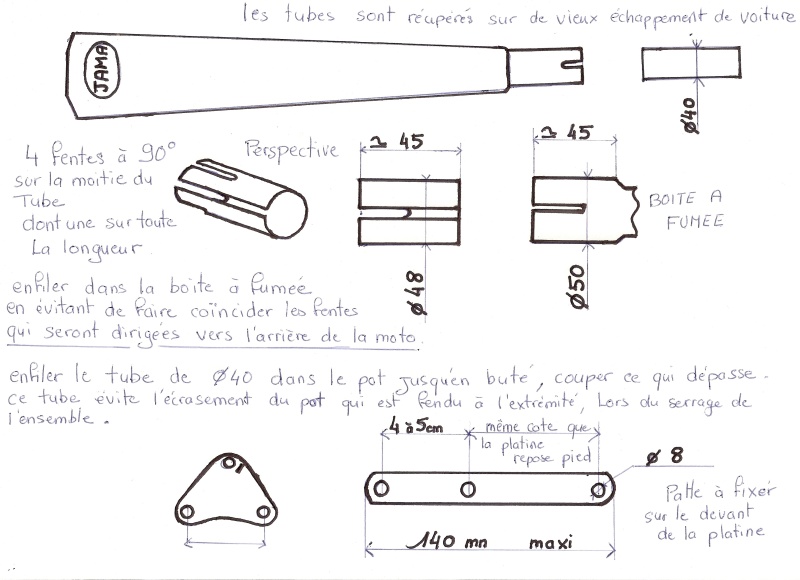 les tubes sont récupérés sur de vieux échappement de voiture
JAMA
Ø40
4 fentes à 90°
sur la moitie du
Tube
dont une sur toute
La longueur.
Perspective
~ 45
Ø48
~ 45
Ø50
BOITE A
FUMEE
enfiler dans la boite à fumeé
en évitant de faire coïncider les fentes
qui seront dirigées vers l'arrière de la moto.
enfiler le tube de Ø40 dans le pot jusqu'en buté, couper ce qui dépasse.
ce tube évite l'écrasement du pot qui est fendu à l'extrémité, Lors du serrage de
l'ensemble.
4 à 5cm
même cote que
la platine
repose pied
Ø 8
140 mn maxi
Patte à fixer
sur le devant
de la platine